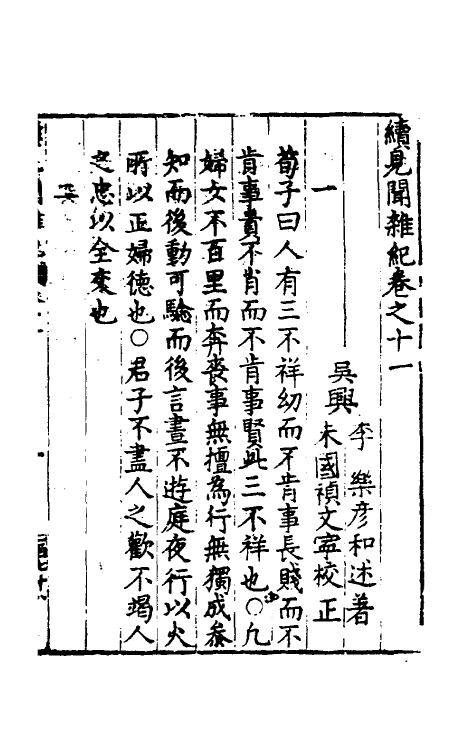 續見聞雜紀卷之十一
吳興
李樂彦和述著
朱國禎文寧校正
一
荀子曰人有三不祥幼而不肯事長賤而不
肯事貴不肖而不肯事賢此三不祥也〇凡
婦女不百里而奔喪事無擅為行無獨成叅
知而後動可驗而後言晝不遊庭夜行以火
所以正婦德也〇君子不盡人之歡不竭人
之忠以全交也